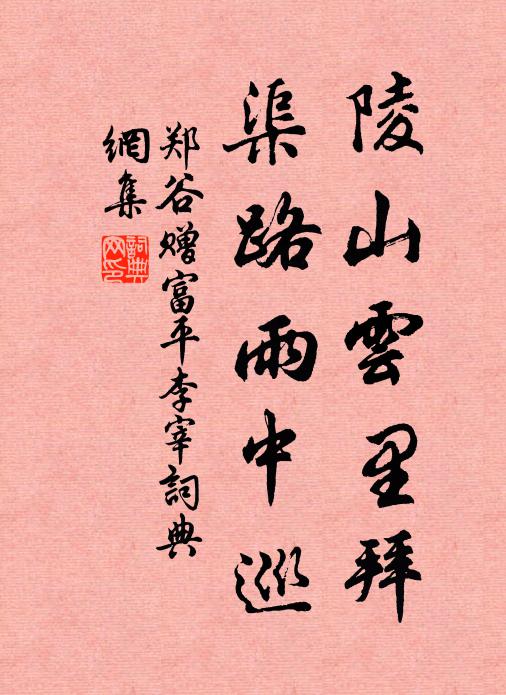 陵山雲里拜
渠路雨中巡
郑谷赠富平李宰詞典
網集
詞典
网印